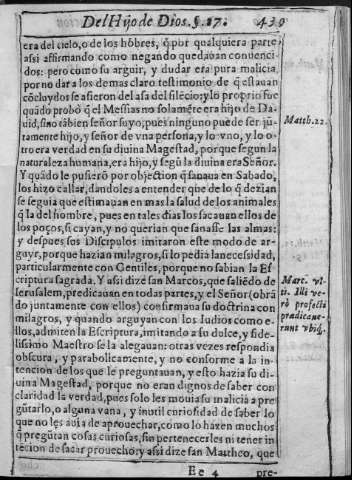 Del Hijo de Dios. §. 27. 439
era del cielo, o de los hõbres, q̃ por qualquiera parte
assi affirmando como negando quedauan conuenci-
dos: pero como su arguir, y dudar era pura malicia,
por no dar a los demas claro testimonio de q̃ estauan
cõcluydos se asieron del asa del silẽcio: y lo proprio fue
quãdo probò q̃ el Messias no solamẽte era hijo de Da-
uid, sino tãbien señor suyo, pues ninguno puede ser jũ-
tamente hijo, y señor de vna persona, y lo vno, y lo o-
tro era verdad en su diuina Magestad, porque segun la
naturaleza humana, era hijo, y segũ la diuina era Señor.
Y quãdo le pusierõ por objection q̃ sanaua en Sabado,
los hizo callar, dandoles a entender que de lo q̃ dezian
se seguia que estimauan en mas la salud de los animales
q̃ la del hombre, pues en tales dias los sacauan ellos de
los poços, si cayan, y no querian que sanasse las almas:
y despues sus Discipulos imitaron este modo de ar-
guyr, porque hazian milagros, si lo pedia la necessidad,
particularmente con Gentiles, porque no sabian la Es
criptura sagrada. Y assi dize san Marcos, que saliẽdo de
Ierusalem, predicauan en todas partes, y el Señor (obrã
do juntamente con ellos) confirmaua su doctrina con
milagros, y quando arguyan con los Iudios como e-
llos, admiten la Escriptura, imitando a su dulce, y fide-
lissimo Maestro se la alegauan: otras vezes respondia
obscura, y parabolicamente, y no conforme a la in-
tencion de los que le preguntauan, y esto hazia su di-
uina Magestad, porque no eran dignos de saber con
claridad la verdad, pues solo les mouia su malicia a pre
gũtarlo, o alguna vana, y inutil curiosidad de saber lo
que no les auia de aprouechar, como lo hazen muchos
q̃ pregũtan cosas curiosas, sin pertenecerles ni tener in
tecion de sacar prouecho: y assi dize san Mattheo, que
Ee 4 pre-
Matth. 22.
Marc. vl-
ti. Illi ve-
rò profecti
prædicaue-
runt vbiq̃.